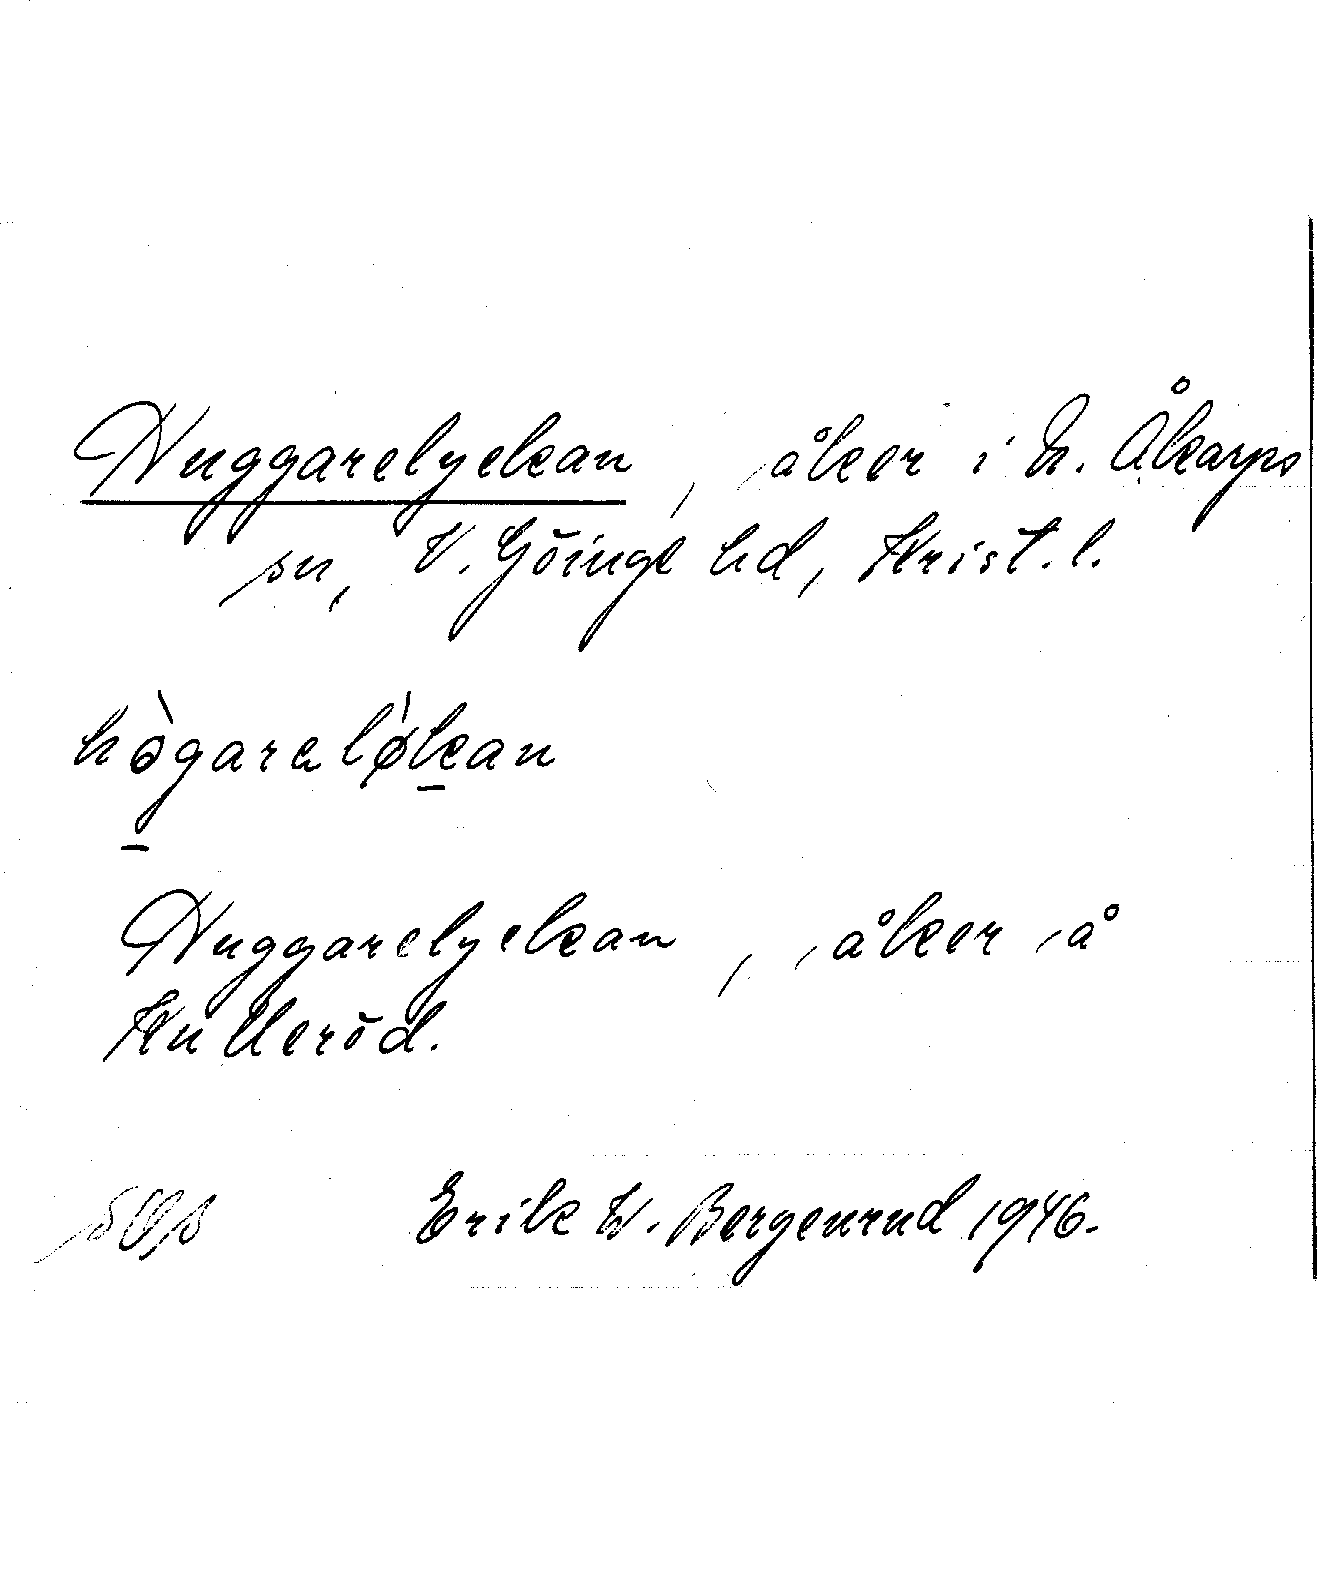 Huggarelyckan, åker i N. Åkarps
sn, V. Göinge hd, Krist. l.
hògarelǿkan
Huggarelyckan, åker å
Kulleröd.
Erik W. Bergenrud 1946.